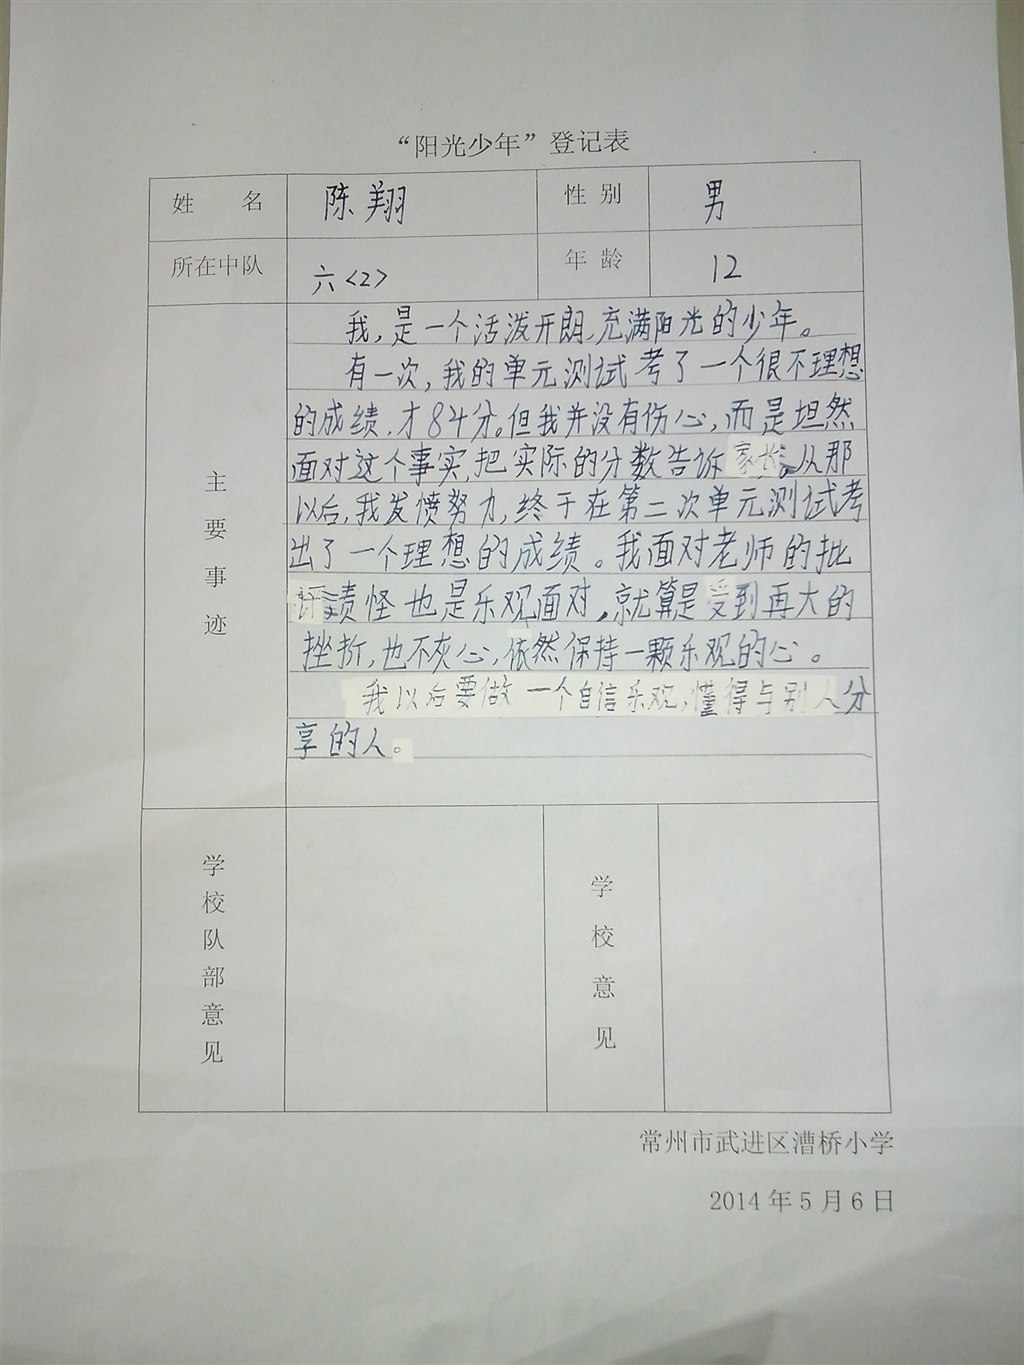 “阳光少年”登记表
姓 名 陈翔 性别 男
所在中队 六<2> 年龄 12
主要事迹
我,是一个活泼开朗,充满阳光的少年。
有一次,我的单元测试考了一个很不理想
的成绩,才84分。但我并没有伤心,而是坦然
面对这个事实,把实际的分数告诉家长。从那
以后,我发愤努力,终于在第二次单元测试考
出了一个理想的成绩。我面对老师的批
评责怪也是乐观面对,就算是受到再大的
挫折,也不灰心,依然保持一颗乐观的心。
我以后要做一个自信乐观,懂得与别人分
享的人。
学校队部意见 学校意见
常州市武进区漕桥小学
2014年5月6日